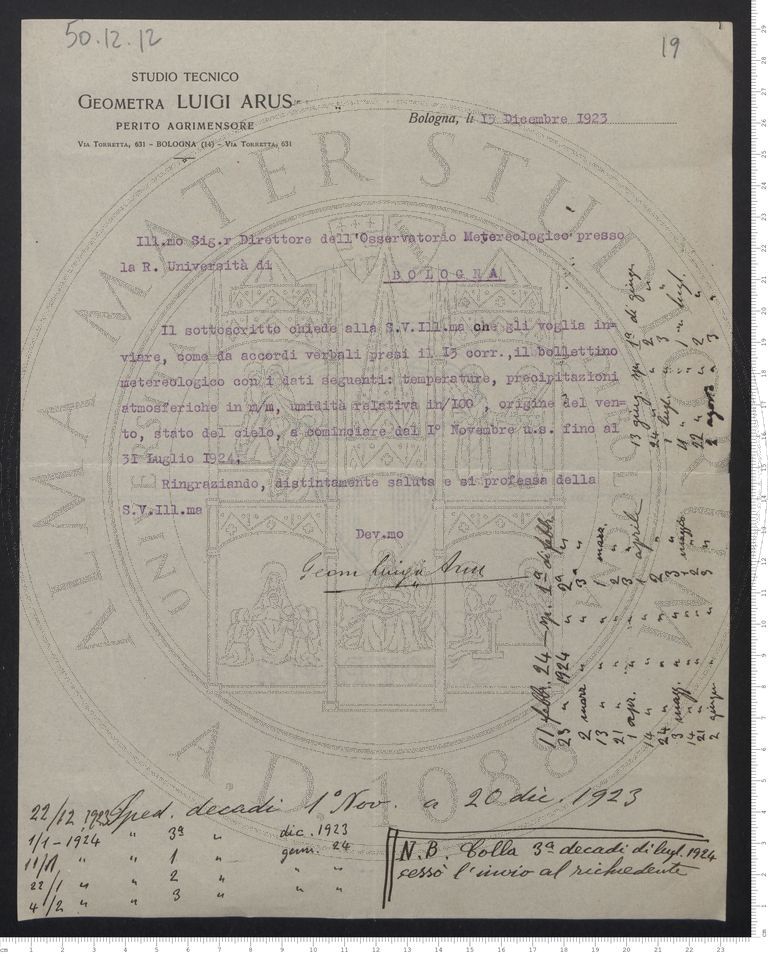 50.12.12
19
STUDIO TECNICO
GEOMETRA LUIGI ARUS
PERITO AGRIMENSORE
VIA TORRETTA, 631 - BOLOGNA (14) - VIA TORRETTA, 631
Bologna, li 15 Dicembre 1923
Ill.mo Sig.r Direttore dell'Osservatorio Metereologico presso
la R. Università di
BOLOGNA
Il sottoscritto chiede alla S.V.Ill.ma che gli voglia in=
viare, come da accordi verbali presi il 13 corr., il bollettino
metereologico con i dati seguenti: temperature, precipitazioni
atmosferiche in m/m, umidità relativa in/100 , origine del ven=
to, stato del cielo, a cominciare dal 1° Novembre u.s. fino al
31 Luglio 1924.
Ringraziando, distintamente saluta e si professa della
S.V.Ill.ma
Dev.mo
Geom Luigi Arus
22/12 1923 Sped. decadi 1° Nov. a 20 dic. 1923
1/1-1924 " 3ª " dic. 1923
11/1 " " 1 " genn. 24
22/1 " " 2 " " "
4/2 " " 3 " " "
N.B. Colla 3ª decadi di lugl. 1924
cessò l'invio al richiedente
11 febb. 24 — sp. 1ª di febb.
23 " 1924 " 2ª "
2 marz " " 3ª "
13 " " " 1 marz
21 " " " 2 "
1 apr. " " 3 "
14 " " " 1 aprile
24 " " " 2 "
3 magg. " " 3 "
14 " " " 1 maggio
21 " " " 2 "
2 giugn " " 3 "
13 giug. sp. 1ª di giugn
24 " " 2 "
1 lugl. " 3 "
11 " " 1 " lugl.
22 " " 2 "
2 agosto " 3 "
ALMA MATER STUDIORUM
A.D. 1088